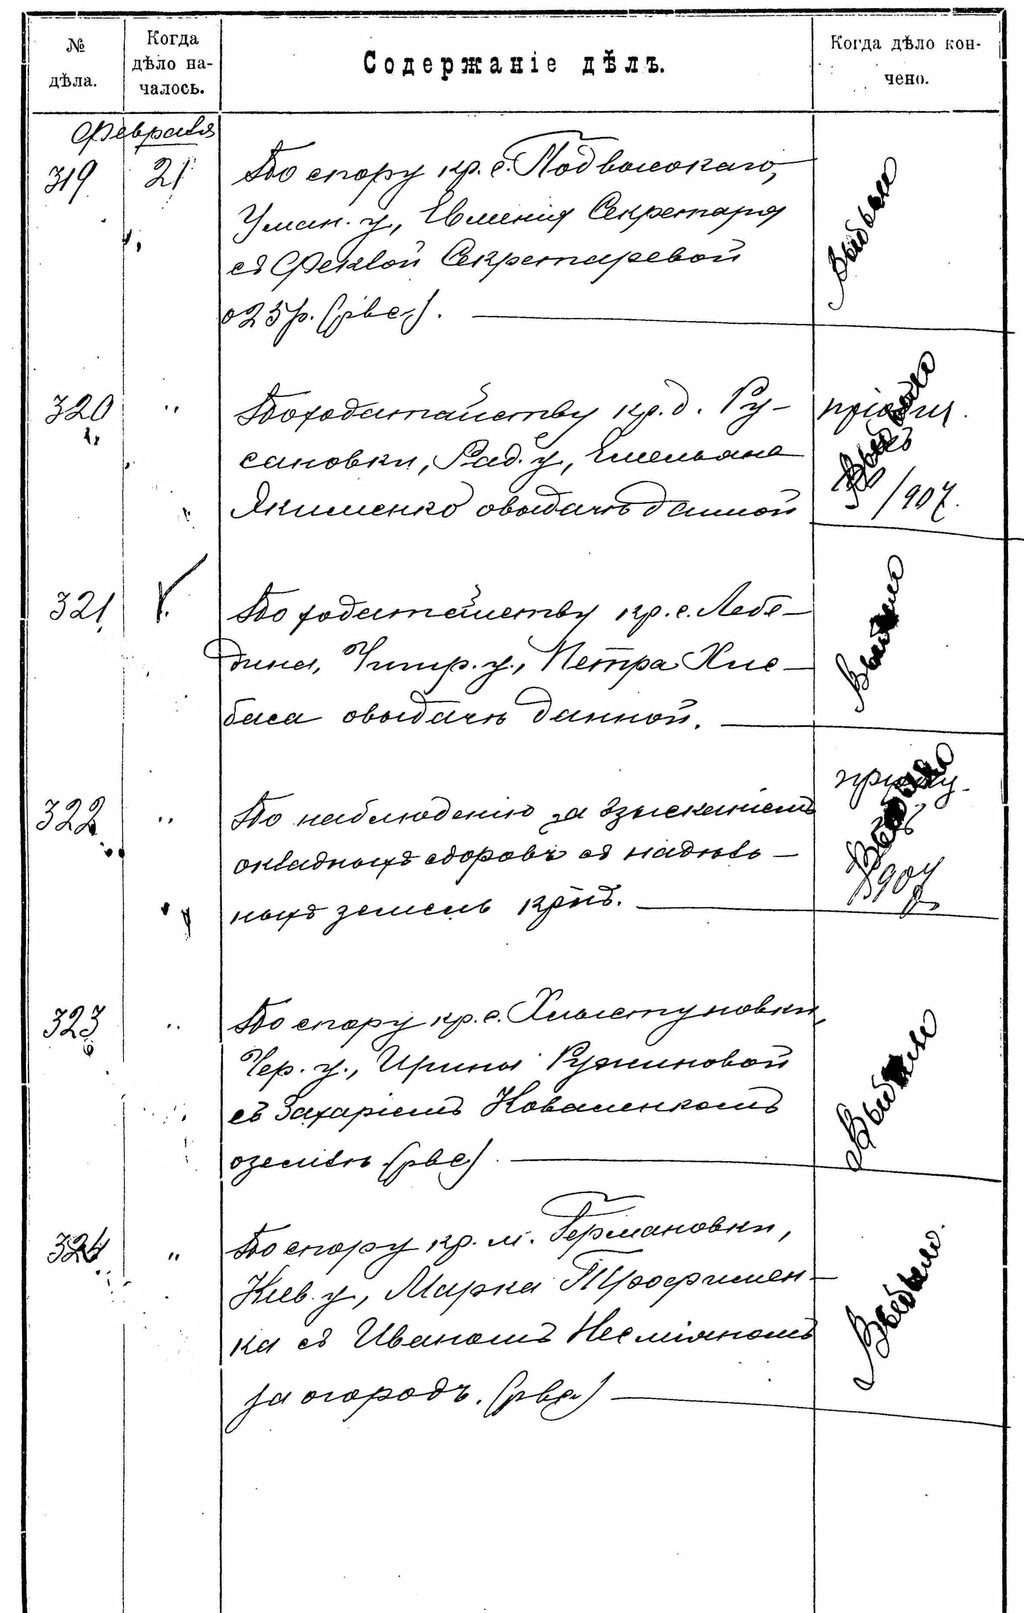 № дѣла.
Когда дѣло началось.
Содержаніе дѣлъ.
Когда дѣло кончено.
Февраля
319 21 По спору кр. с. Подвысокаго,
Уман. у., Евменія Секретаря
съ Феклой Секретаревой
о 25 р. (рвс.). Выбыло
320 " По ходатайству кр. д. Ру-
сановки, Рад. у., Емельяна
Якименко о выдачѣ данной
Выбыло /907.
321 По ходатайству кр. с. Лебе-
дина, Чигир. у., Петра Хле-
баса о выдачѣ данной. Выбыло
322 " По наблюденію за взысканіемъ
окладныхъ сборовъ съ надѣль-
ныхъ земель кр. Выбыло 1907
323 " По спору кр. с. Хлыстуновки,
Чер. у., Ирины Ружиновой
съ Захаріемъ Коваленкомъ
о землѣ (рвс) Выбыло
324 " По спору кр. м. Германовки,
Кіев. у., Марка Трофимен-
ка съ Иваномъ Несміяномъ
за огородъ. (рвс) Выбыло